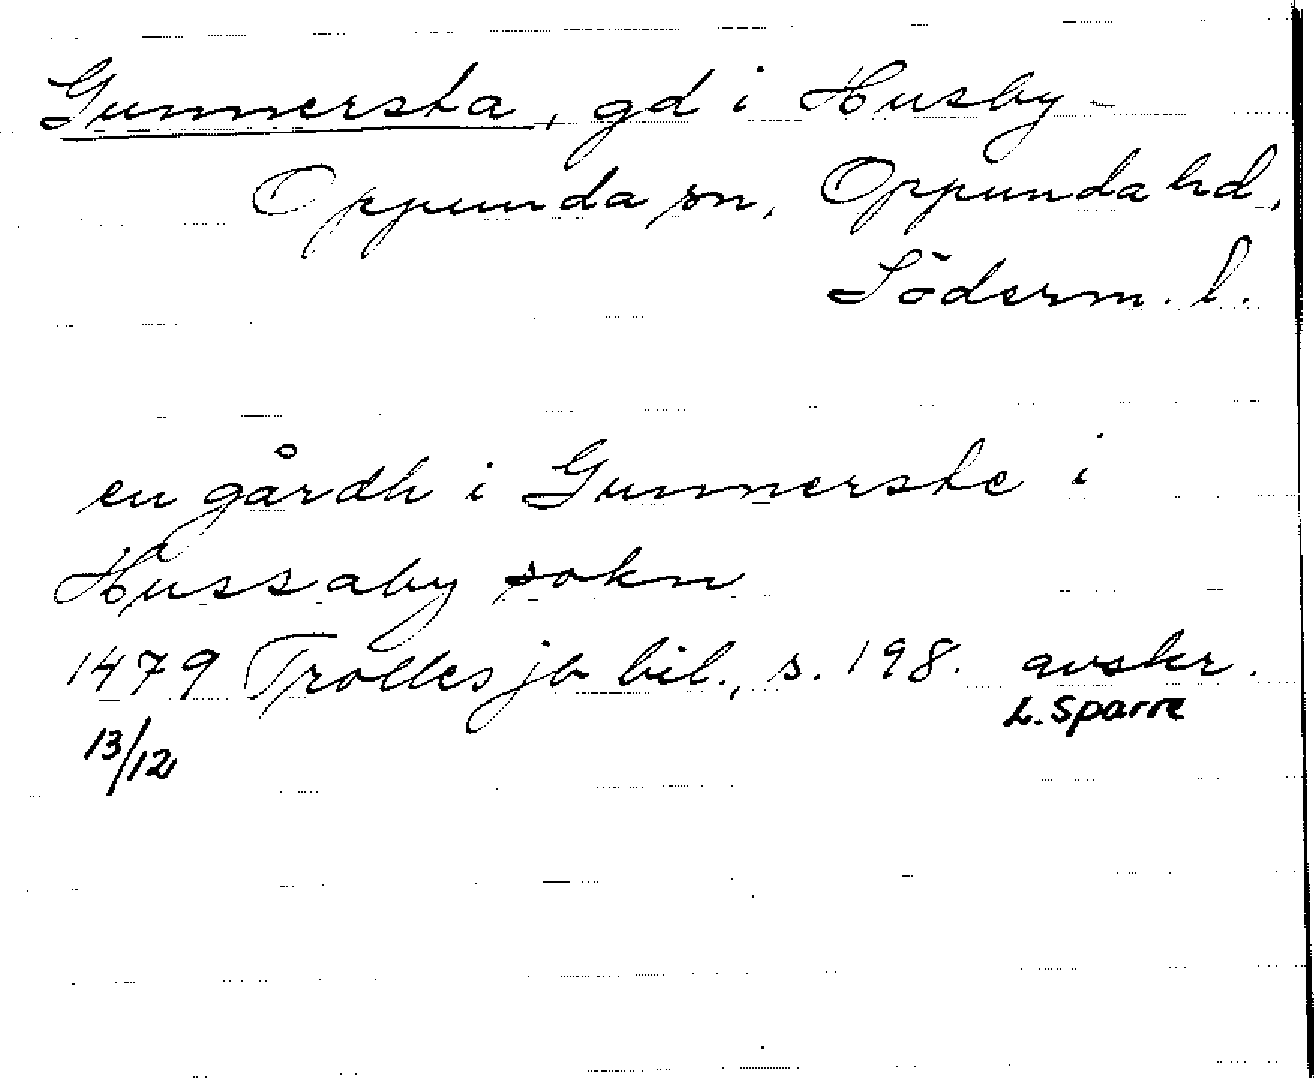 Gunnersta, gd i Husby-
Oppunda sn, Oppunda hd,
Söderm. l.
en gårdh i Gunnerste i
Hussaby sokn
1479 Trolles jb bil., s. 198. avskr.
L. Sparre
13/12